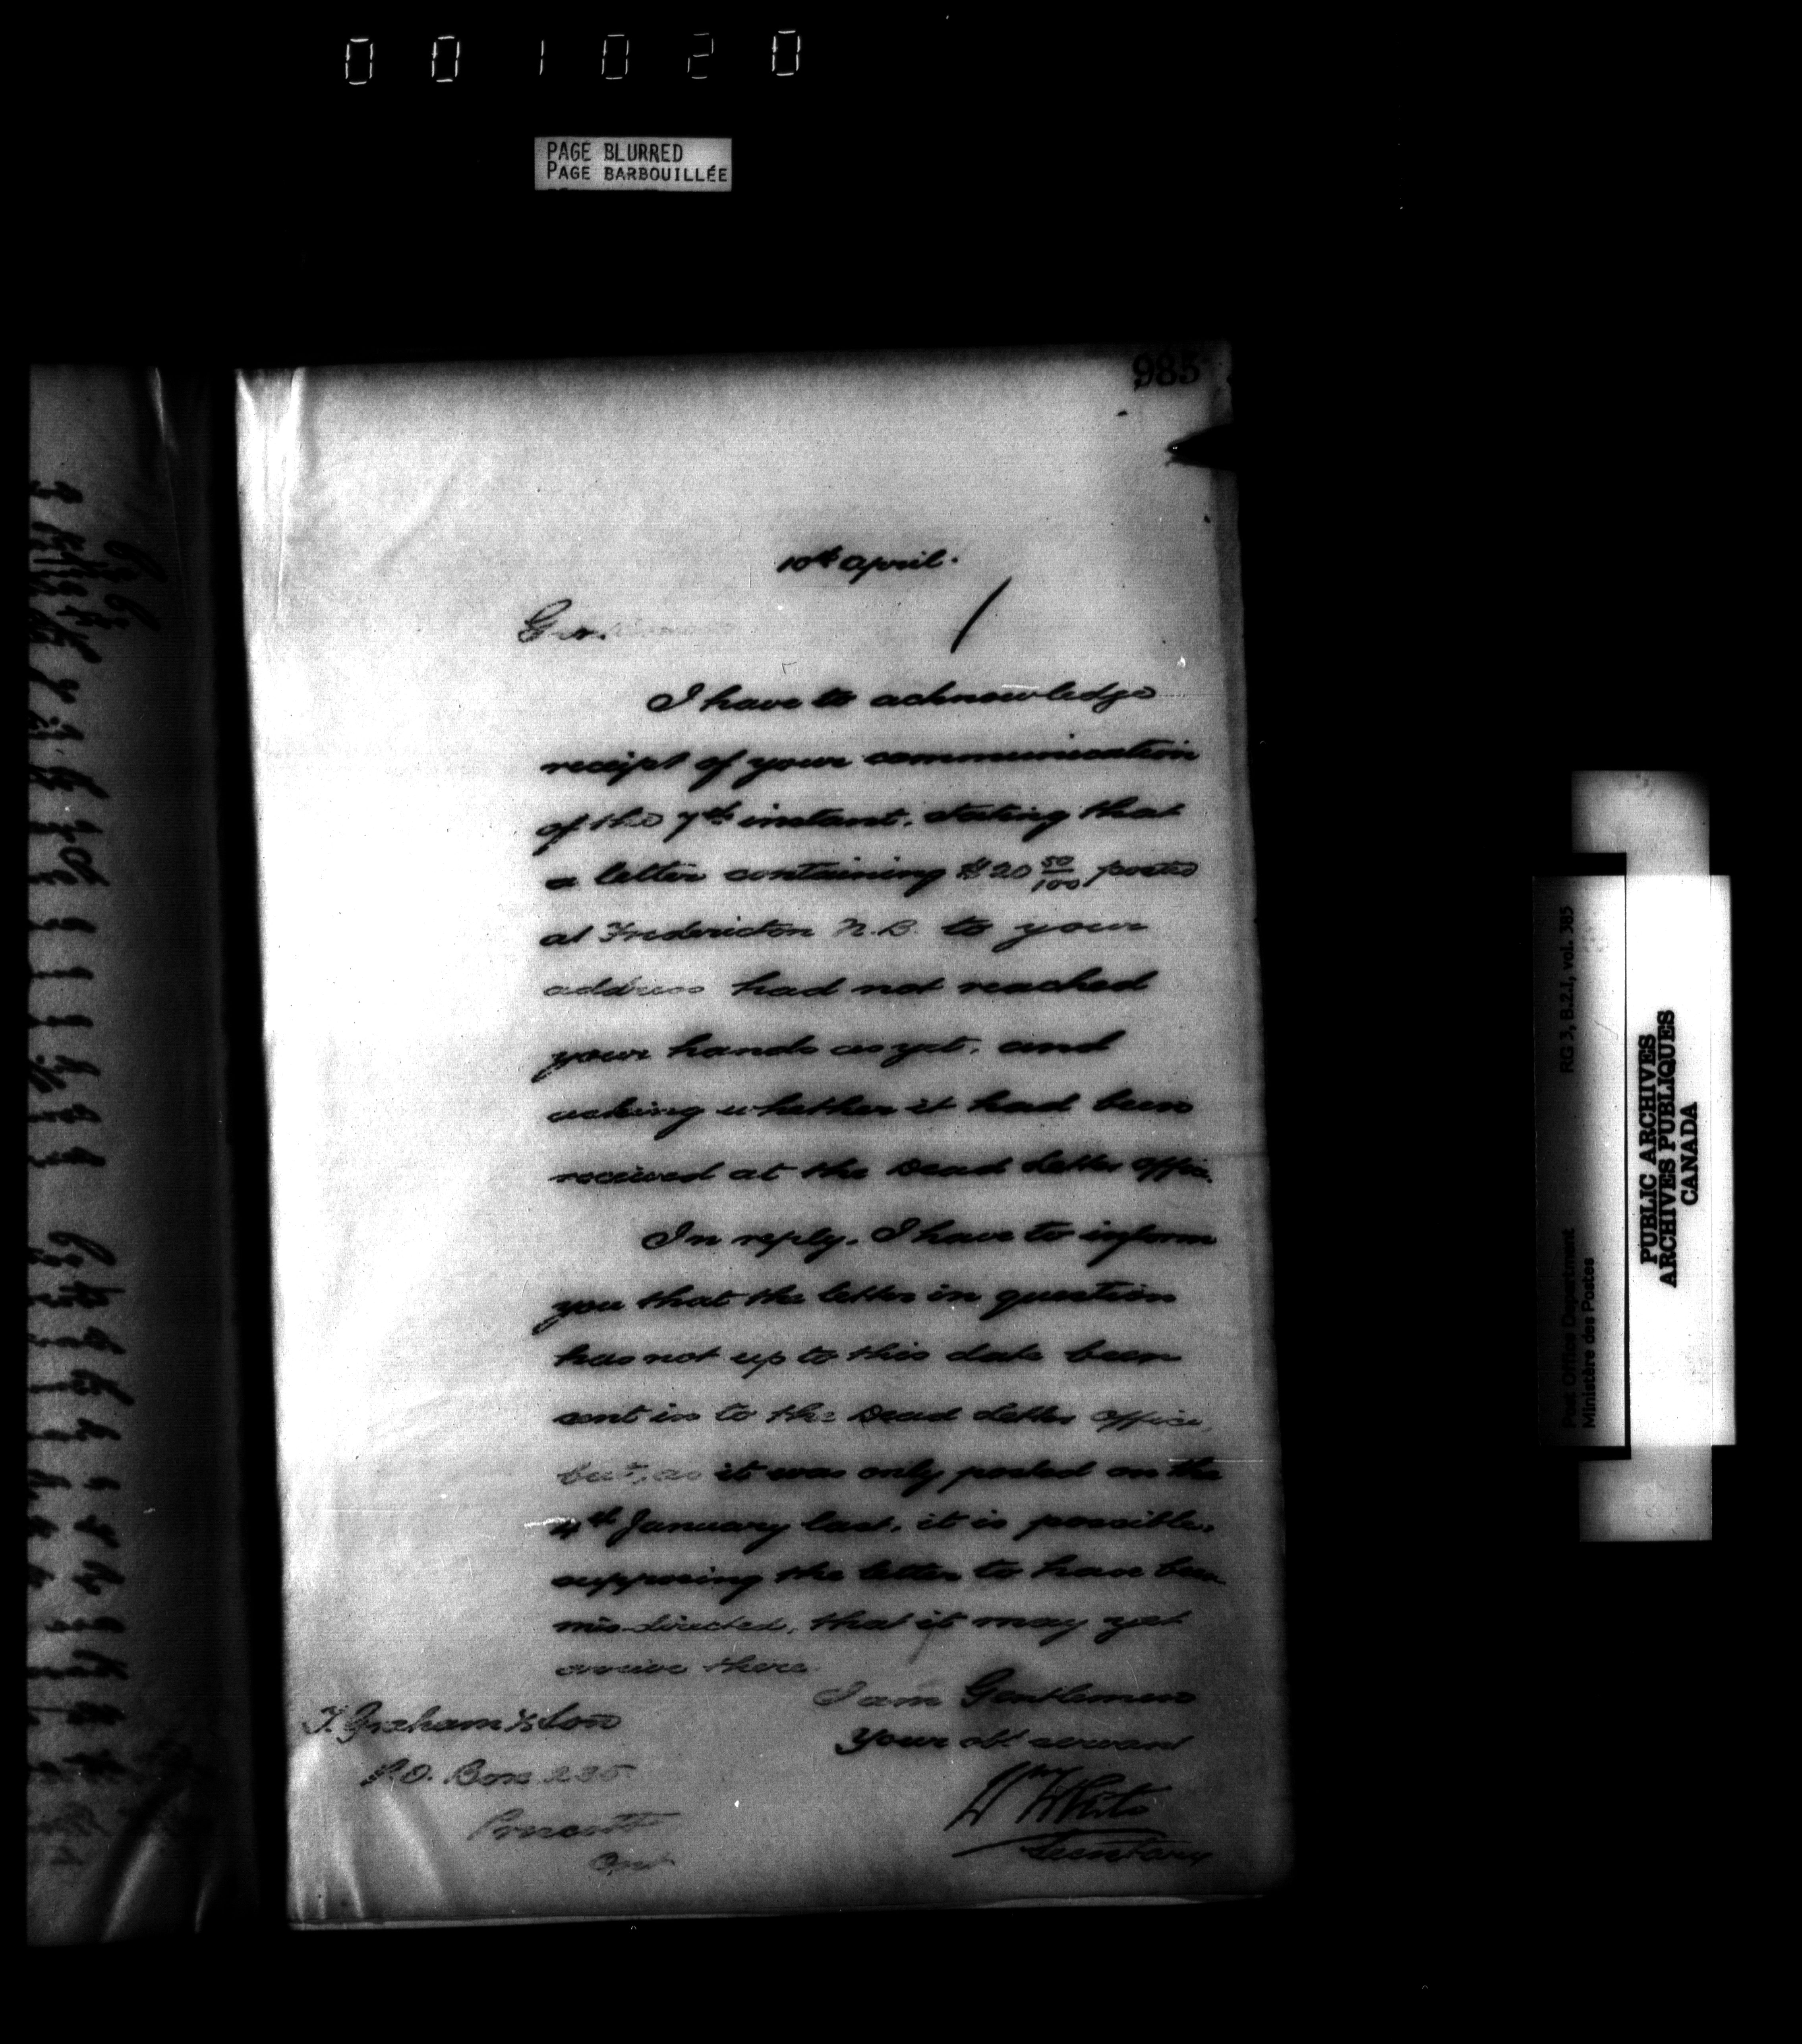 001020
PAGE BLURRED
PAGE BARBOUILLÉE
985
10th April.
Gentlemen
I have to acknowledge
receipt of your communication
of the 7th instant, stating that
a letter containing $20 50/100 posted
at Fredericton N.B. to your
address had not reached
your hands as yet, and
asking whether it had been
received at the Dead Letter Office.
In reply, I have to inform
you that the letter in question
has not up to this date been
sent in to the Dead Letter Office,
but, as it was only posted on the
4th January last, it is possible,
supposing the letter to have been
mis-directed, that it may yet
arrive there
I am Gentlemen
Your obt servant
Wm White
Secretary
Graham & Son
P.O. Box 235
Prescott
Ont
RG 3, B.2.I, vol. 385
Post Office Department
Ministère des Postes
PUBLIC ARCHIVES
ARCHIVES PUBLIQUES
CANADA